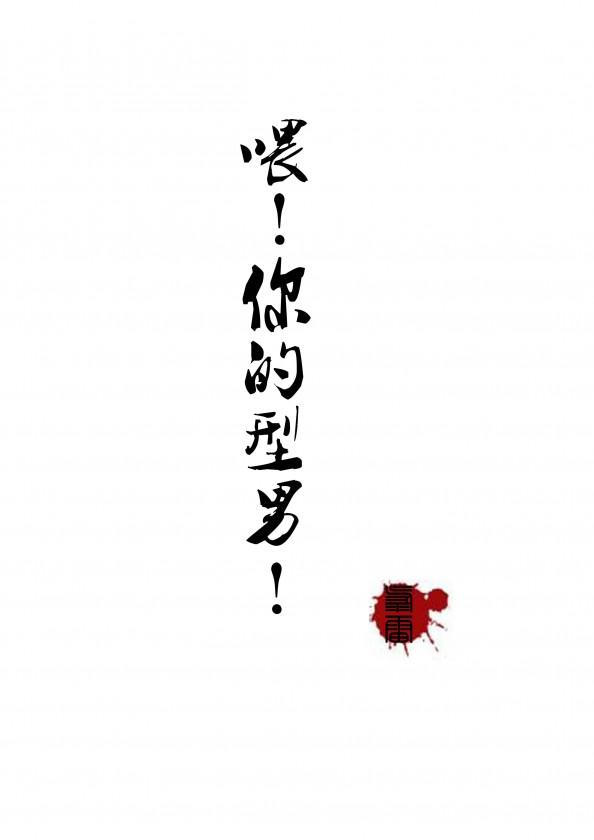 喂！你的型男！